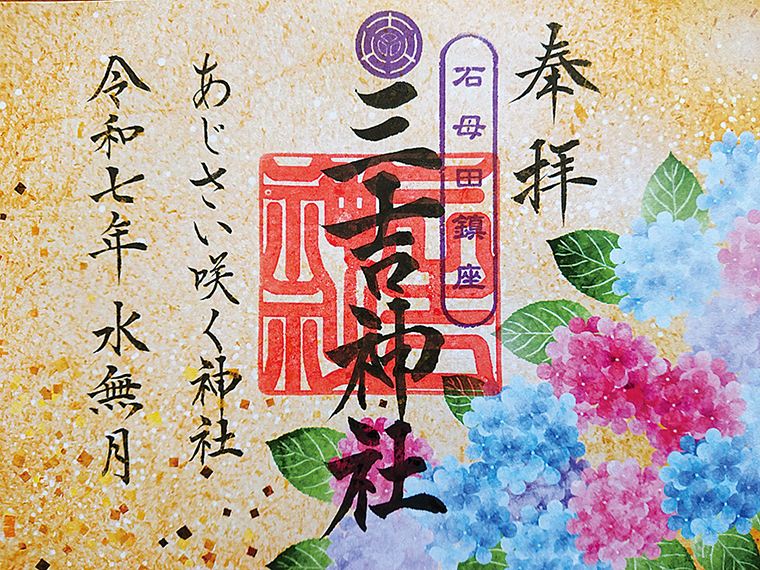 奉拝
石母田鎮座
三吉神社
あじさい咲く神社
令和七年 水無月